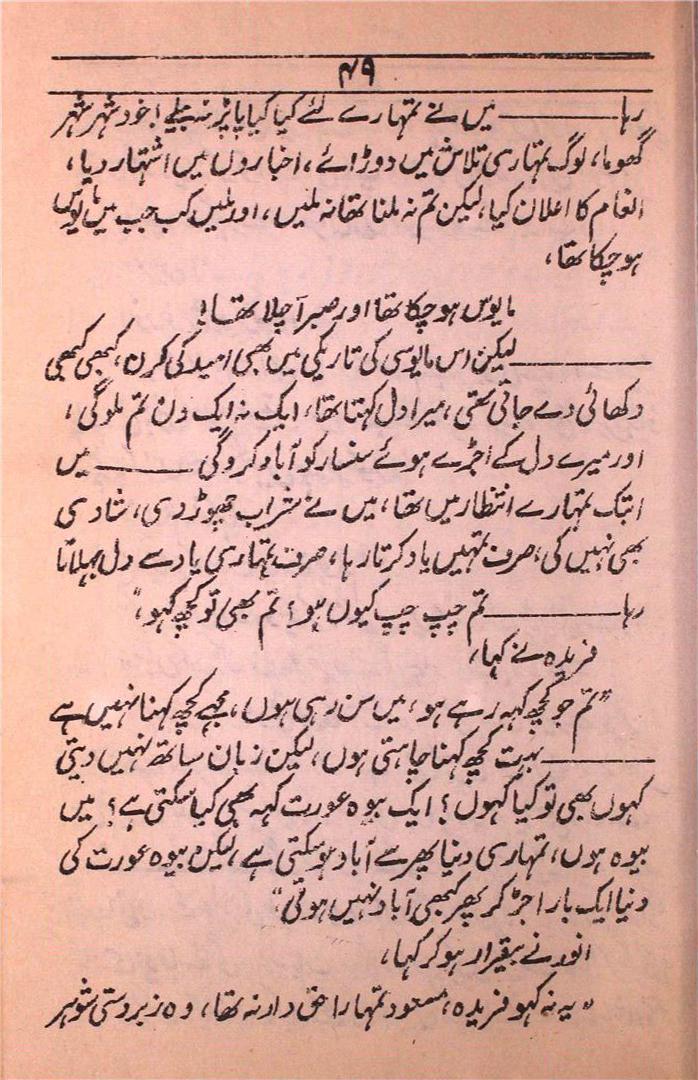 ۴۹
رہا ——— میں نے تمہارے لئے کیا کیا پاپڑ نہ بیلے! خود شہر شہر
گھوما، لوگ تمہاری تلاش میں دوڑائے، اخباروں میں اشتہار دیا،
انعام کا اعلان کیا، لیکن تم نہ ملنا تھا نہ ملیں، اور ملیں کب جب میں مایوس
ہو چکا تھا،
مایوس ہو چکا تھا اور صبر آ چلا تھا!
——— لیکن اس مایوسی کی تاریکی میں بھی امید کی کرن، کبھی کبھی
دکھائی دے جاتی تھی، میرا دل کہتا تھا، ایک نہ ایک دن تم ملو گی،
اور میرے دل کے اجڑے ہوئے سنسار کو آباد کرو گی ——— میں
ابتک تمہارے انتظار میں تھا، میں نے شراب چھوڑ دی، شادی
بھی نہیں کی، صرف تمہیں یاد کرتا رہا، صرف تمہاری یاد سے دل بہلاتا
رہا ——— تم چپ چپ کیوں ہو؟ تم بھی تو کچھ کہو،"
فریدہ نے کہا،
"تم جو کچھ کہہ رہے ہو، میں سن رہی ہوں، مجھے کچھ کہنا نہیں ہے
——— بہت کچھ کہنا چاہتی ہوں، لیکن زبان ساتھ نہیں دیتی
کہوں بھی تو کیا کہوں؟ ایک بیوہ عورت کہہ بھی کیا سکتی ہے؟ میں
بیوہ ہوں، تمہاری دنیا پھر سے آباد ہو سکتی ہے، لیکن بیوہ عورت کی
دنیا ایک بار اجڑ کر پھر کبھی آباد نہیں ہوتی"
انور نے بیقرار ہو کر کہا،
"یہ نہ کہو فریدہ، مسعود تمہارا حق دار نہ تھا، وہ زبردستی شوہر